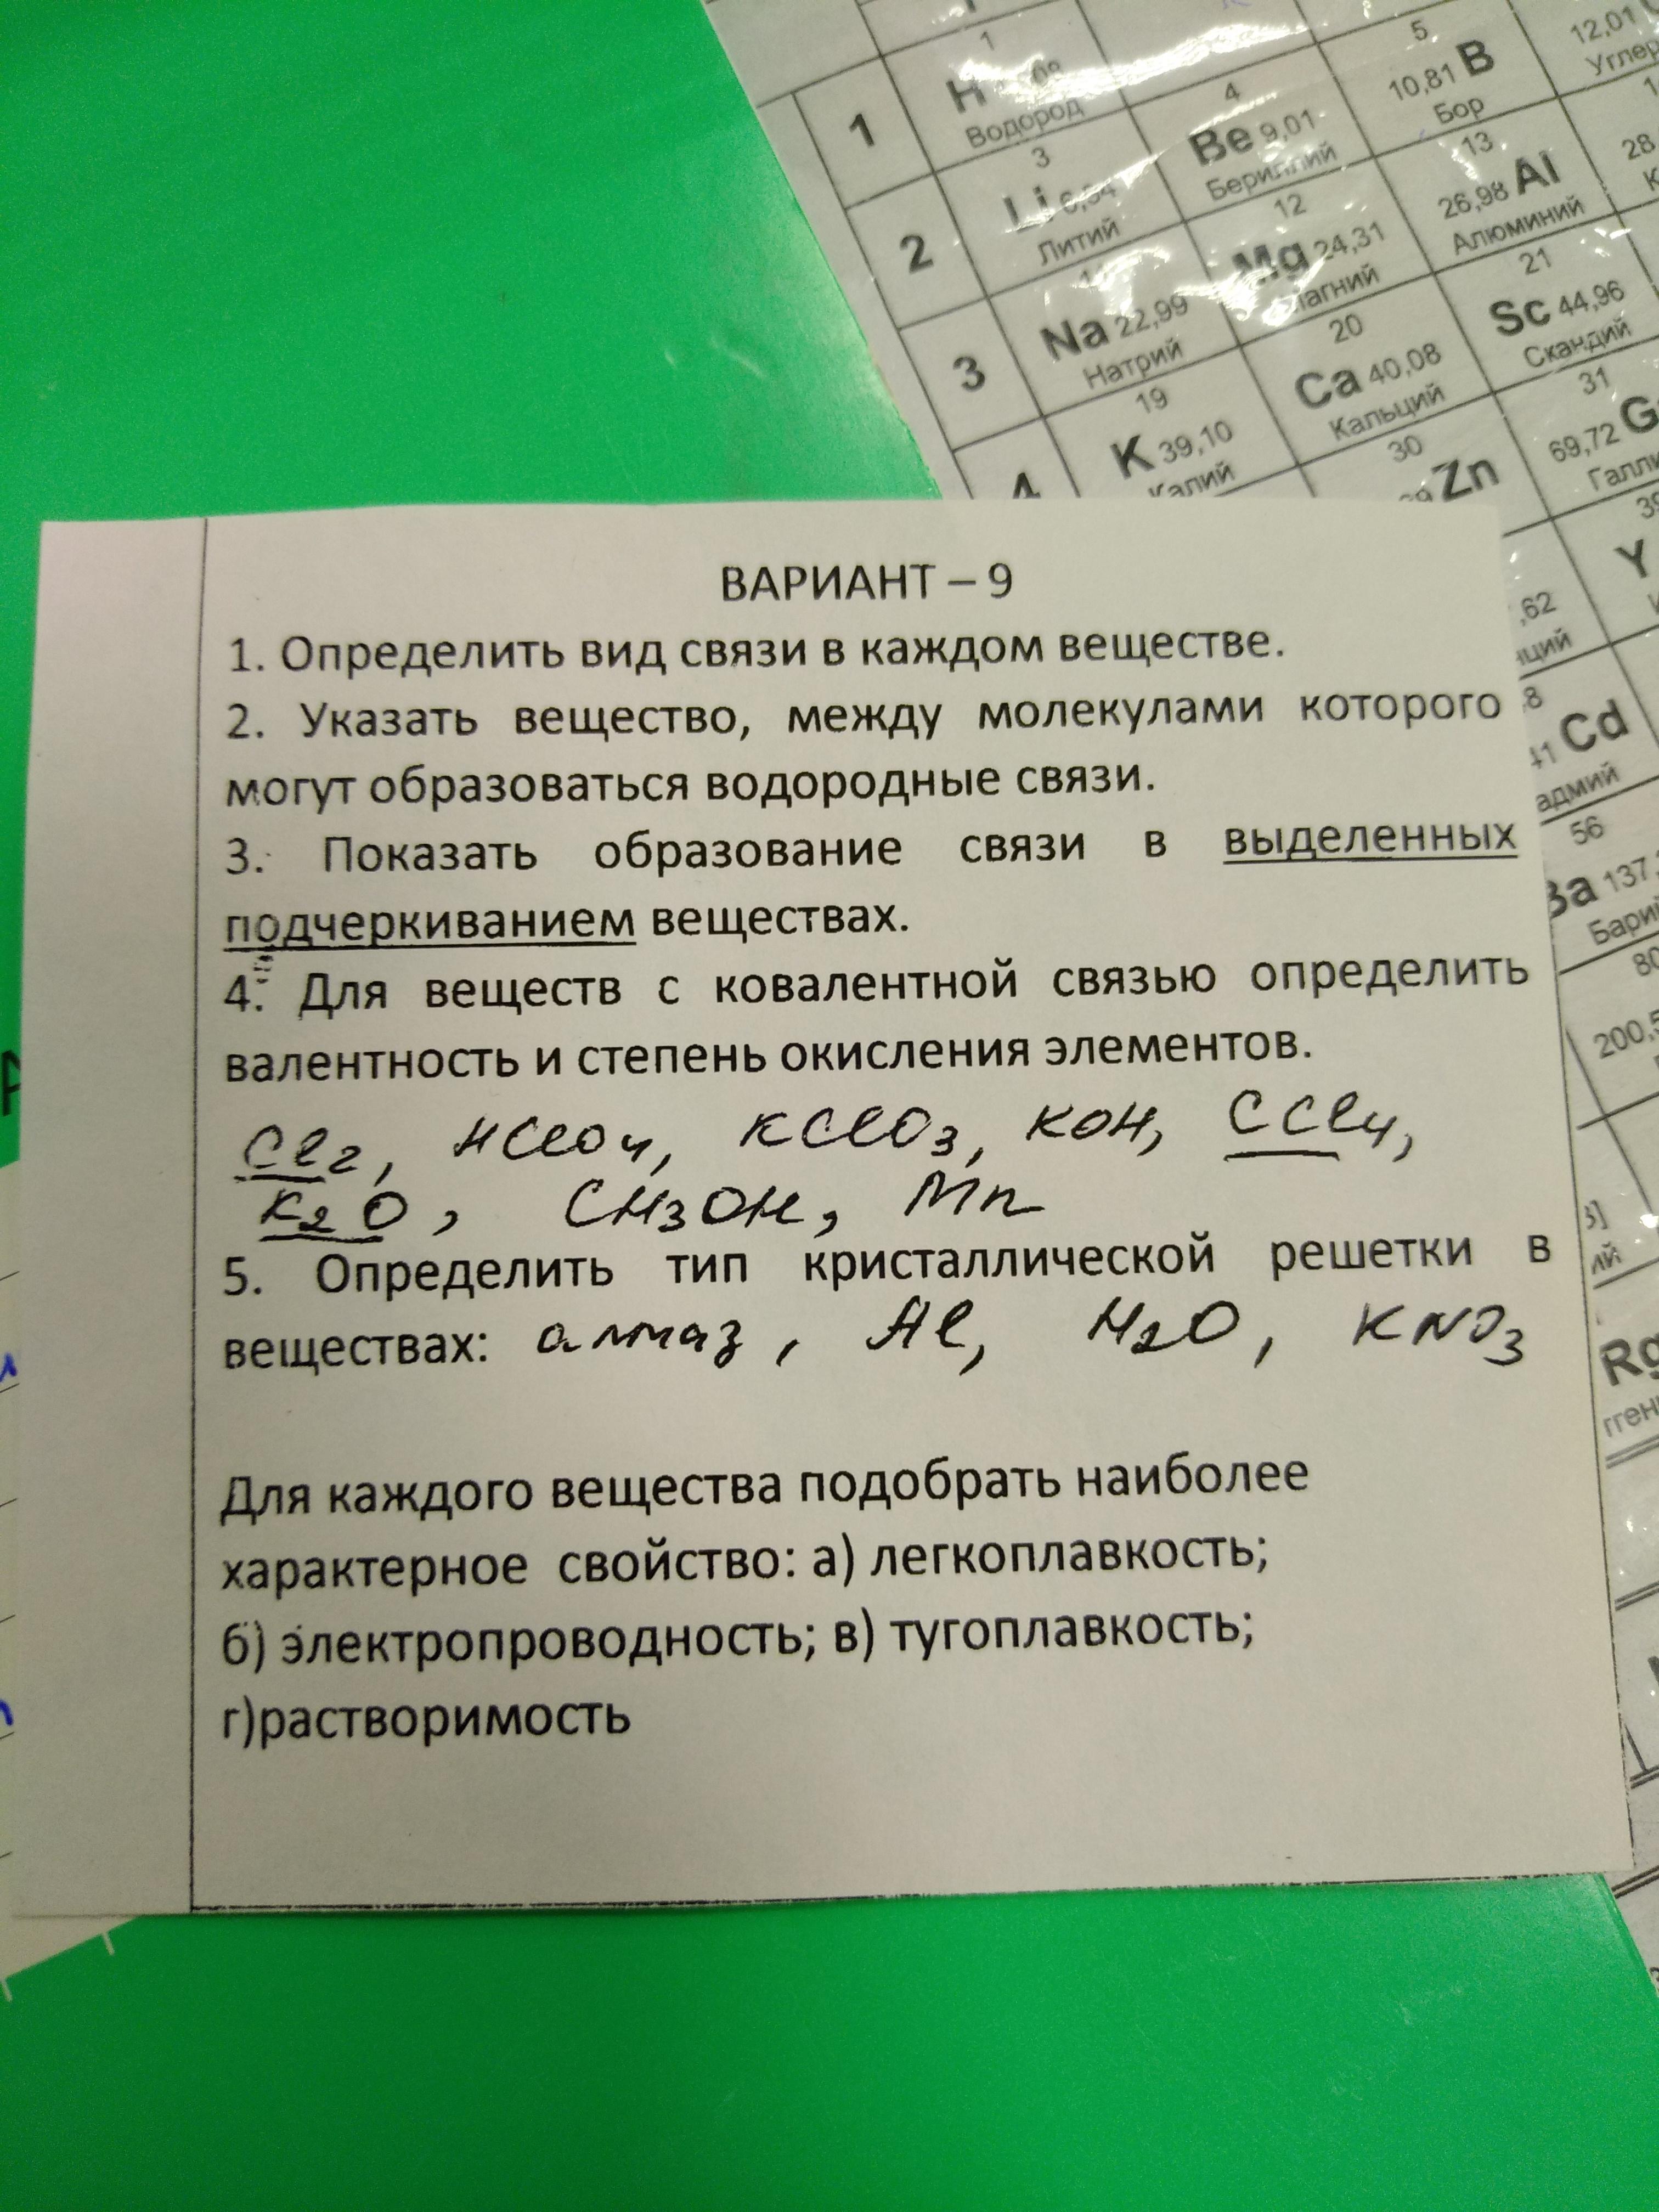 1
H
Водород
5
10,81 B
Бор
12,01
1
3
Li 6,94
Литий
4
Be 9,01
Бериллий
13
26,98 Al
Алюминий
28
2
Na 22,99
Натрий
12
Mg 24,31
21
Sc 44,96
Скандий
3
19
K 39,10
Калий
20
Ca 40,08
Кальций
31
69,72
4
30
Zn
39
Y
,62
Cd
56
Ba 137,
Барий
80
200,5
Rg
ВАРИАНТ – 9
1. Определить вид связи в каждом веществе.
2. Указать вещество, между молекулами которого
могут образоваться водородные связи.
3. Показать образование связи в выделенных
подчеркиванием веществах.
4. Для веществ с ковалентной связью определить
валентность и степень окисления элементов.
Cl2, HClO4, KClO3, KOH, CCl4,
K2O, CH3OH, Mn
5. Определить тип кристаллической решетки в
веществах: алмаз, Al, H2O, KNO3
Для каждого вещества подобрать наиболее
характерное свойство: а) легкоплавкость;
б) электропроводность; в) тугоплавкость;
г)растворимость